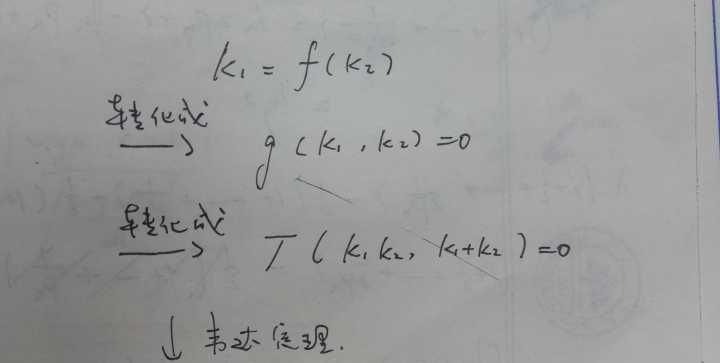 k₁ = f(k₂)
转化成 → g(k₁, k₂)=0
转化成 → T(k₁k₂, k₁+k₂)=0
↓ 韦达定理.